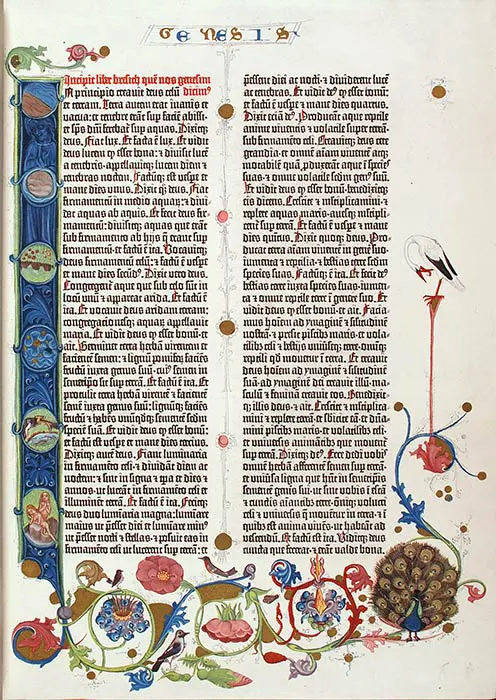 GENESIS
Incipit liber bresith quē nos genesim
A principio creavit deus celū dicim⁹
et terram. Terra autem erat inanis et
vacua: et tenebre erāt sup faciē abissi:
et sp̄s dn̄i ferebat̄ sup aquas. Dixitq̄
deus. Fiat lux. Et facta ē lux. Et vidit
deus lucem q̄ esset bona: et divisit lucē
a tenebris·appellavitq̄ lucem diem et
tenebras noctem. Factūq̄ est vespe et
mane dies unus. Dixit q̄ deus. Fiat
firmamentū in medio aquarū: et divi-
dat aquas ab aquis. Et fecit deus fir-
mamentū: divisitq̄ aquas que erāt
sub firmamento ab hijs q̄ erant sup
firmamentū: et factū ē ita. Vocavitq̄
deus firmamentū celū: et factū ē vespe
et mane dies secūd⁹. Dixit vero deus.
Congregent̄ aque que sub celo sūt in
locū unū et appareat arida. Et factū ē
ita. Et vocavit deus aridam terram:
congregacionesq̄ aquarū appellavit
maria. Et vidit deus q̄ esset bonū·et
ait. Germinet terra herbā virentem et
facientem semen: et lignū pomiferū faciēs
fructū iuxta genus suū·cui⁹ semen in
semetipō sit sup terrā. Et factū ē ita. Et
protulit terra herbā virentē et facientē
semē iuxta genus suū: lignūq̄ faciēs
fructū et habēs unūqdq̄ sementē scdm
specię suā. Et vidit deus q̄ esset bonū:
et factū est vespe et mane dies tercius.
Dixitq̄ autē deus. Fiant luminaria
in firmamēto celi·et dividāt diem ac
noctem: et sint in signa et tpa et dies et
annos·ut luceāt in firmamēto celi et
illuminēt terrā. Et factū ē ita. Fecitq̄
deus duo luminaria magna: luminare
maius ut pesset diei et luminare min⁹
ut pesset nocti et stellas·et posuit eas in
firmamēto celi ut lucerent sup terrā: et
pessent diei ac nocti·et dividerent lucē
ac tenebras. Et vidit de⁹ q̄ esset bonū:
et factū ē vespe et mane dies quartus.
Dixit eciā de⁹. Producant aque reptile
anime viventis et volatile sup terrā
sub firmamēto celi. Creavitq̄ deus cete
grandia·et omnē aīam viventē atq̄
motabilē quā pduxerāt aque ī species
suas·et omne volatile scdm gen⁹ suū.
Et vidit deus q̄ esset bonū·benedixitq̄
eis dicens. Crescite et mltiplicamini·et
replete aquas maris·avesq̄ mltipli-
cent̄ sup terrā. Et factū ē vespe et mane
dies quitus. Dixit quoq̄ deus. Pro-
ducat terra aīam viventē in genē suo·
iumenta et reptilia·et bestias terre scdm
species suas. Factūq̄ ē ita. Et fecit de⁹
bestias terre iuxta species suas·iumen-
ta et omne reptile terre ī genere suo. Et
vidit deus q̄ esset bonū·et ait. Facia-
mus hoīem ad ymaginē et similitudinē
nostrā·et presit piscib⁹ maris·et vola-
tilib⁹ celi et bestijs universeq̄ terre·omniq̄
reptili qd movetur ī terra. Et creavit
deus hoīem ad ymaginē et similitudinē
suā·ad ymaginē dei creavit illū·mascu-
lū et feminā creavit eos. Benedixitq̄
illis deus·et ait. Crescite et mltiplica-
mini et replete terrā·et sbicite eā·et dnamini
piscib⁹ maris·et volatilib⁹ celi:
et universis animātib⁹ que moventur
sup terrā. Dixitq̄ de⁹. Ecce dedi vobis
omnē herbā afferentē semen sup terrā·
et universa ligna que hn̄t in semetip̄is
sementē genis sui·ut sint vobis ī escā
et cunctis aīantib⁹ terre·oniq̄ volucri
celi et universis q̄ movent̄ in terra·et ī
quib⁹ est anima vivēs·ut habeāt ad
vescendū. Et factū est ita. Viditq̄ deus
cuncta que fecerat·et erāt valde bona.